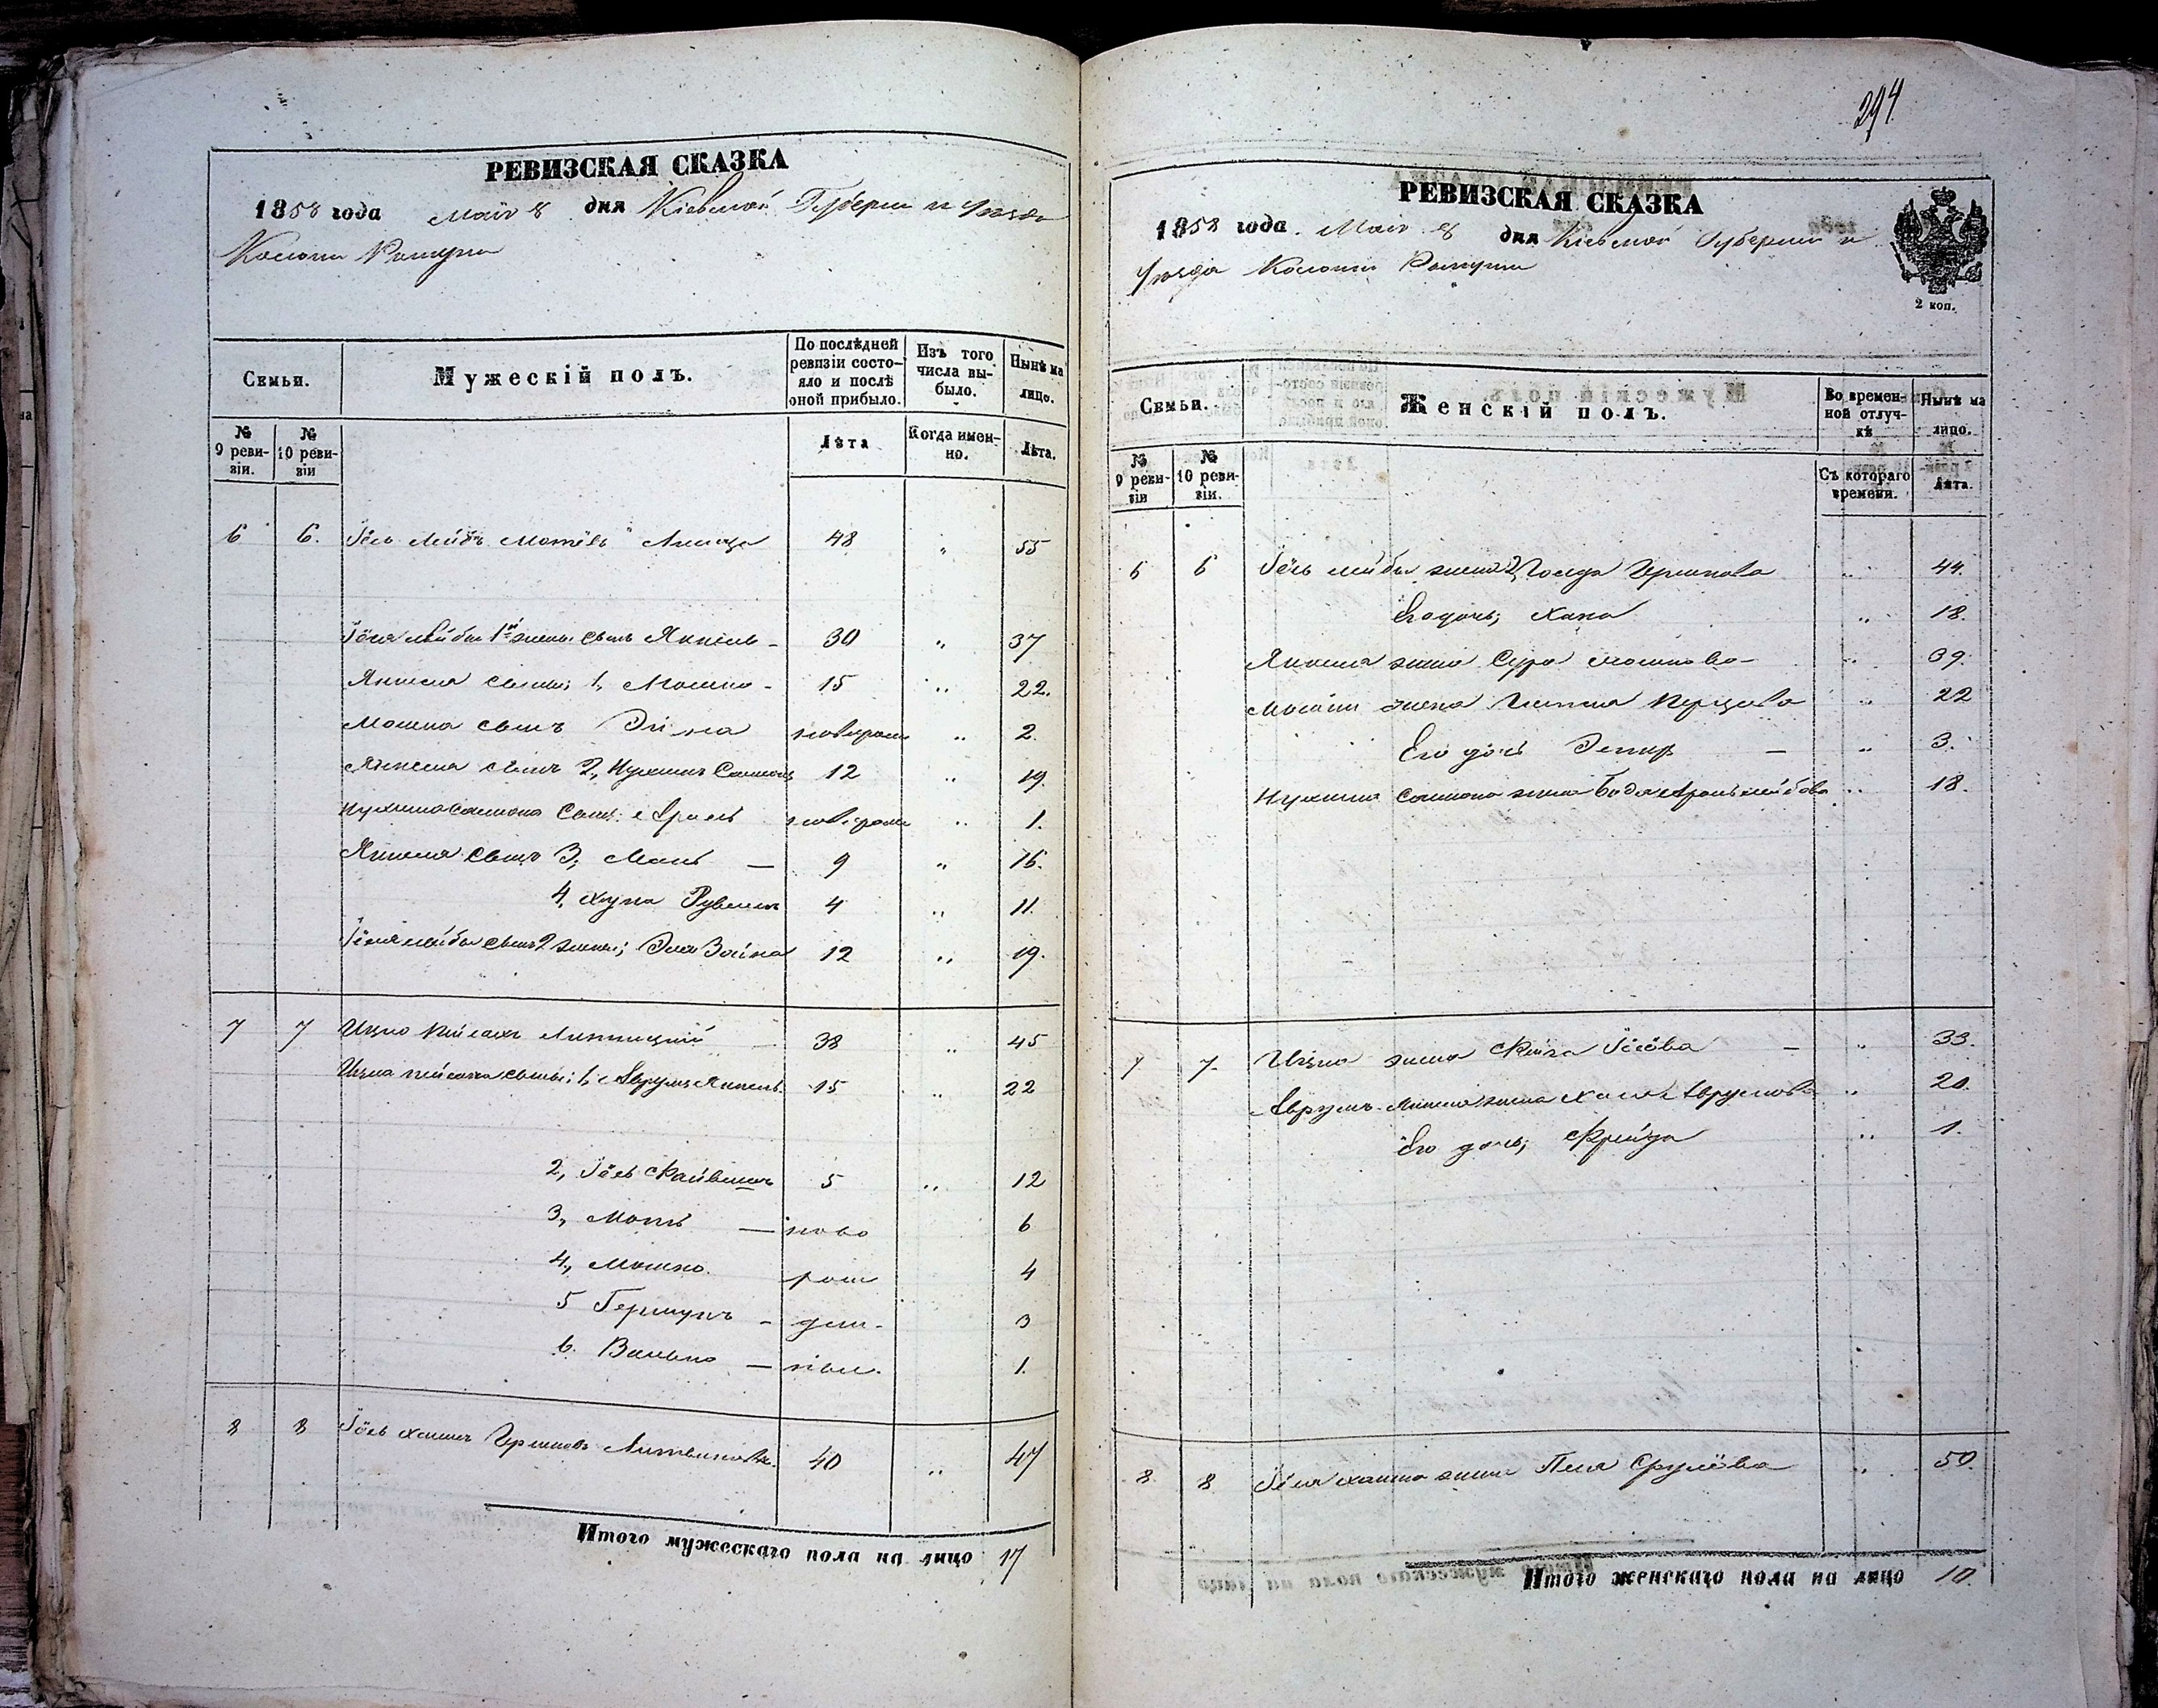 РЕВИЗСКАЯ СКАЗКА
1858 года Маія 8 дня Кіевской Губерніи и Уѣзда
Колоніи Ротунт
Семьи.
Мужескій полъ.
По послѣдней ревизіи состояло и послѣ оной прибыло.
Изъ того числа выбыло.
Нынѣ на лицо.
№ 9 ревизіи.
№ 10 ревизіи
Лѣта
Когда именно.
Лѣта.
6 6. Іось Лейбъ Мотёвъ 48 " 55
Іося Лейбы 1й жены сынъ Янкель - 30 " 37
Янкеля сыновья 1, Мошко - 15 " 22.
Мошка сынъ новорожд " 2.
Янкеля сынъ 2, Нухимъ Соломонъ 12 " 19.
Нухима Соломона сынъ: Сруль новорож " 1.
Янкеля сынъ 3, — 9 " 16.
4, Хуна Рувинъ 4 " 11.
Іося Лейбы сынъ 2 жены; Эля Зойна 12 " 19.
7 7 Ицко Пейсахъ Липницкій — 38 " 45
Ицка Пейсаха сыны: 1, Аврумъ Янкель. 15 " 22
2, Іось Файвишъ 5 " 12
3, Мотъ — ново 6
4, Мошко. рож 4
5 Гершунъ - ден- 3
6. Волько — ные. 1.
8 8 Іось Хаимъ Гершковъ Литвиновъ. 40 " 47
Итого мужескаго пола на лицо 17
294
РЕВИЗСКАЯ СКАЗКА
1858 года. Маія 8 дня Кіевской Губерніи и
Уѣзда Колоніи Ротунт
2 коп.
Семьи.
Женскій полъ.
Во временной отлучкѣ
Нынѣ на лицо.
№ 9 ревизіи
№ 10 ревизіи.
Съ котораго времени.
Лѣта.
6 6 Іось Лейбы жена 2, Голда Гершкова " 44.
Его дочь; Хана " 18.
Янкеля жена Сура Мошкова - " 39.
Мошки жена Гитля Перцова " 22
Его дочь Эстир — " 3.
Нухима Соломона жена Бейла Аронълейбова " 18.
7 7. Ицка жена Фейга Іосёва — " 33.
Аврумъ-Янкеля жена Хая Аврумова " 20.
Его дочь; Фрейда " 1.
8 8 Іося Хаима жена Песя Срулёва " 50.
Итого женскаго пола на лицо 10.